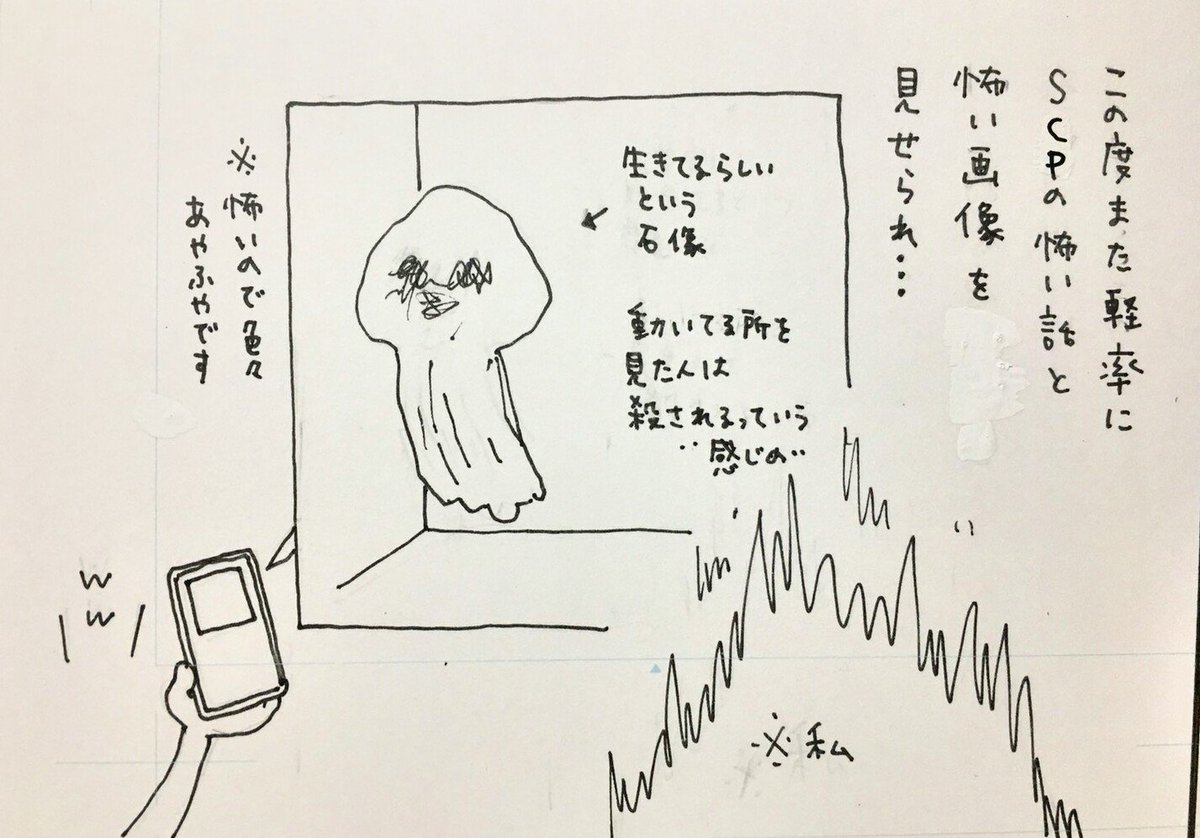 この度また軽率に
SCPの怖い話と
怖い画像を
見せられ・・・
生きてるらしい
という
石像
動いてる所を
見た人は
殺されるっていう
"感じの"
※怖いので色々
あやふやです
w
w
※私